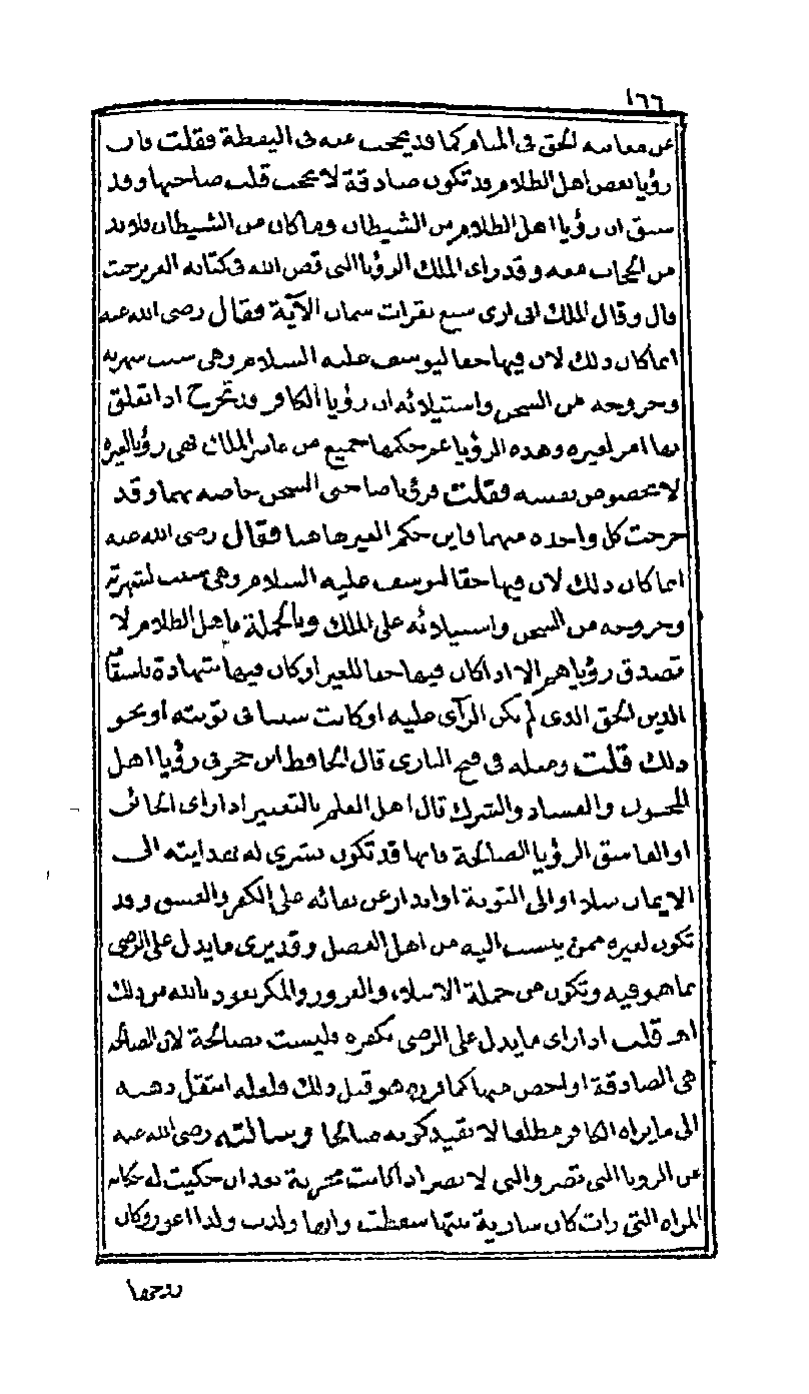 ١٦٦
عن معاينة الحق فى المنام كما قد يحجب عنه فى اليقظة فقلت فان
رؤيا بعض اهل الظلام قد تكون صادقة لا يحجب قلب صاحبها وقد
سبق ان رؤيا اهل الظلام من الشيطان وما كان من الشيطان فلا بد
من الحجاب معه وقد راى الملك الرؤيا التى قص الله فى كتابه العزيز حيث
قال وقال الملك انى ارى سبع بقرات سمان الآية فقال رضى الله عنه
انما كان ذلك لان فيها حقا ليوسف عليه السلام وهى سبب شهرته
وخروجه من السجن واستيلائه ان رؤيا الكافر قد تخرج اذا تعلق
بها امر لغيره وهذه الرؤيا عم حكمها جميع من عاصر الملك فهى رؤيا لغيره
لا بخصوص نفسه فقلت فرؤيا صاحبى السجن خاصة بهما وقد
خرجت كل واحدة منهما فاين حكم الغير هاهنا فقال رضى الله عنه
انما كان ذلك لان فيها حقا ليوسف عليه السلام وهى سبب لشهرته
وخروجه من السجن واستيلائه على الملك وبالجملة فاهل الظلام لا
تصدق رؤياهم الا اذا كان فيها حقا للغير او كان فيها شهادة
الدين الحق الذى لم يكن الرآى عليه او كانت سببا فى توبته او نحو
ذلك قلت ومثله فى فتح البارى قال الحافظ ابن حجر فى رؤيا اهل
السجون والفساد والشرك قال اهل العلم بالتعبير اذا راى الكافر
او الفاسق الرؤيا الصالحة فانها قد تكون بشرى له بهدايته الى
الايمان مثلا او الى التوبة او انذار عن بقائه على الكفر والفسق وقد
تكون لغيره ممن ينسب اليه من اهل الفضل وقد يرى ما يدل على الرضى
بما هو فيه وتكون من جملة الابتلاء والغرور والمكر نعوذ بالله من ذلك
اهـ قلت اذا راى ما يدل على الرضى بكفره فليست بصالحة لان الصالحة
هى الصادقة او اخص منها كما قرره هو قبل ذلك فلعله انتقل ذهنه
الى ما يراه الكافر مطلقا لا بقيد كونه صالحا وسالته رضى الله عنه
عن الرويا التى تضر والتى لا تضر اذا كانت محزنة بعد ان حكيت له حكاية
المراة التى رات كان سارية بيتها سقطت وانها ولدت ولدا اعور وكان
زوجها